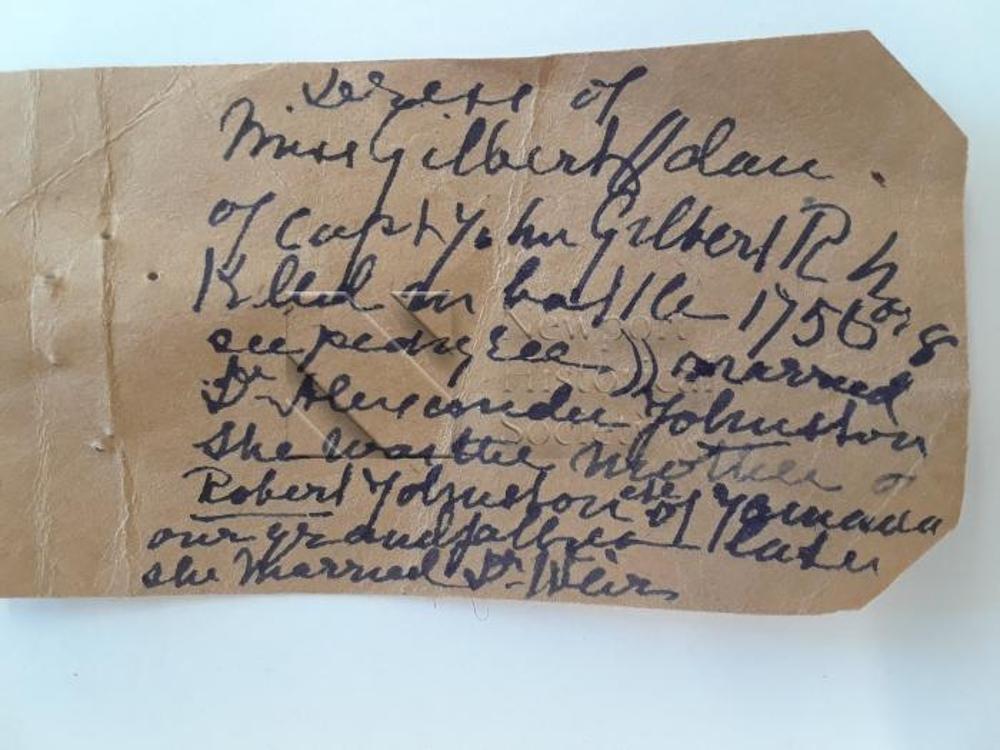 of
Miss Gilbert dau
of Capt John Gilbert R N
Killed in battle 1756 or 8
see pedigree )) married
Dr Alexander Johnston
She was the Mother o
Robert Johnston of Jamaica
our grandfather later
she Married Dr Weir
Newport
Historical
Society